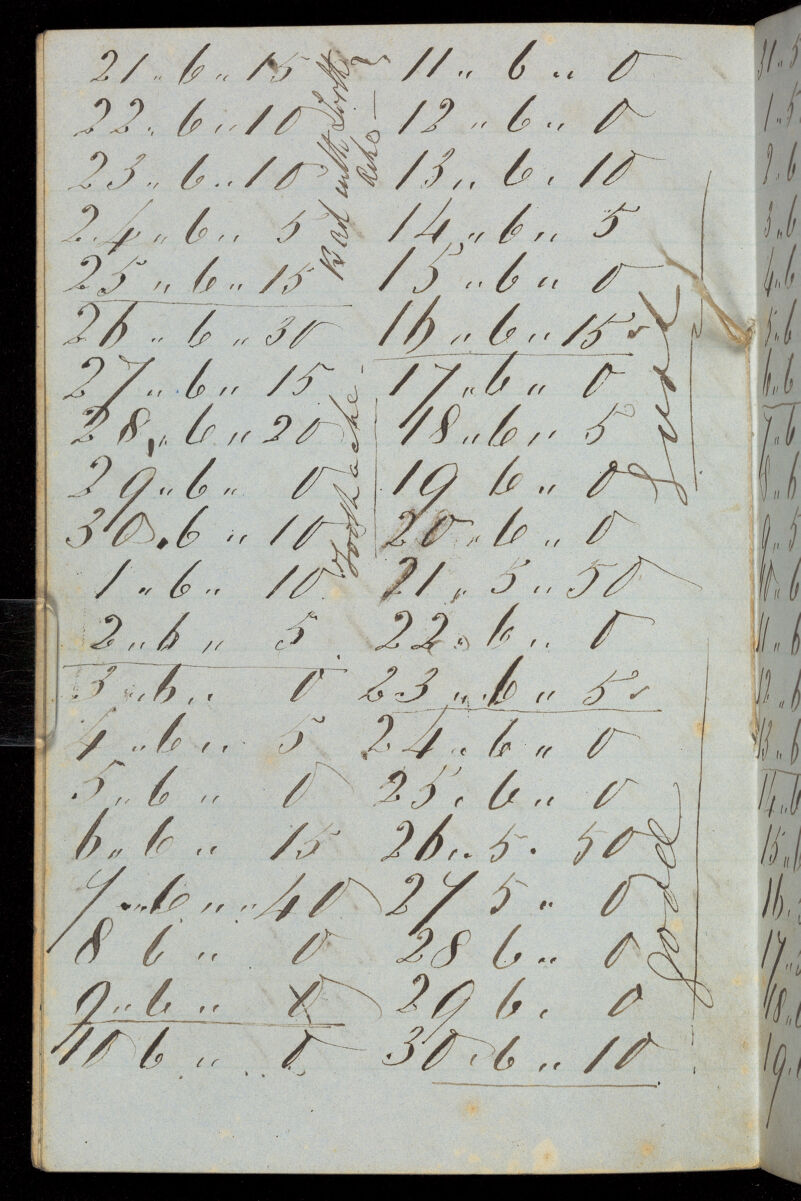 21 " 6 " 15
22 " 6 " 10
23 " 6 " 10
24 " 6 " 5
25 " 6 " 15
26 " 6 " 30
27 " 6 " 15
28 " 6 " 20
29 " 6 " 0
30 " 6 " 10
1 " 6 " 10
2 " 6 " 5
3 " 6 " 0
4 " 6 " 5
5 " 6 " 0
6 " 6 " 15
7 " 6 " 40
8 6 " 0
9 " 6 " 0
10 6 " 0
Bad with Tooth
Ache
Toothache
11 " 6 " 0
12 " 6 " 0
13 " 6 " 10
14 " 6 " 5
15 " 6 " 0
16 " 6 " 15
17 " 6 " 0
18 " 6 " 5
19 6 " 0
20 " 6 " 0
21 " 5 " 50
22 " 6 " 0
23 " 6 " 5
24 " 6 " 0
25 " 6 " 0
26 " 5 " 50
27 5 " 0
28 6 " 0
29 6 " 0
30 " 6 " 10
good
good
31 " 5
1 " 5
2 " 6
3 " 6
4 " 6
5 " 6
6 " 6
7 " 6
8 " 6
9 " 5
10 " 6
11 " 6
12 " 6
13 " 6
14 " 6
15 " 6
16
17
18 " 6
19